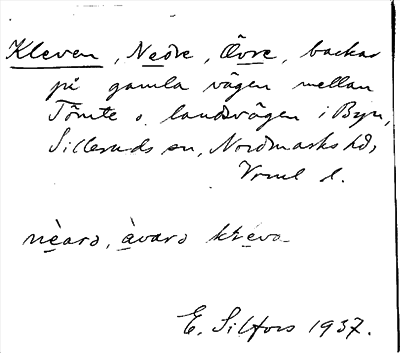 Kleven, Nedre, Övre, backar
på gamla vägen mellan
Tömte o. landsvägen i Byn,
Silleruds sn, Nordmarks hd,
Vrml d.
nèarə, àvarə
E. Silfors 1937.